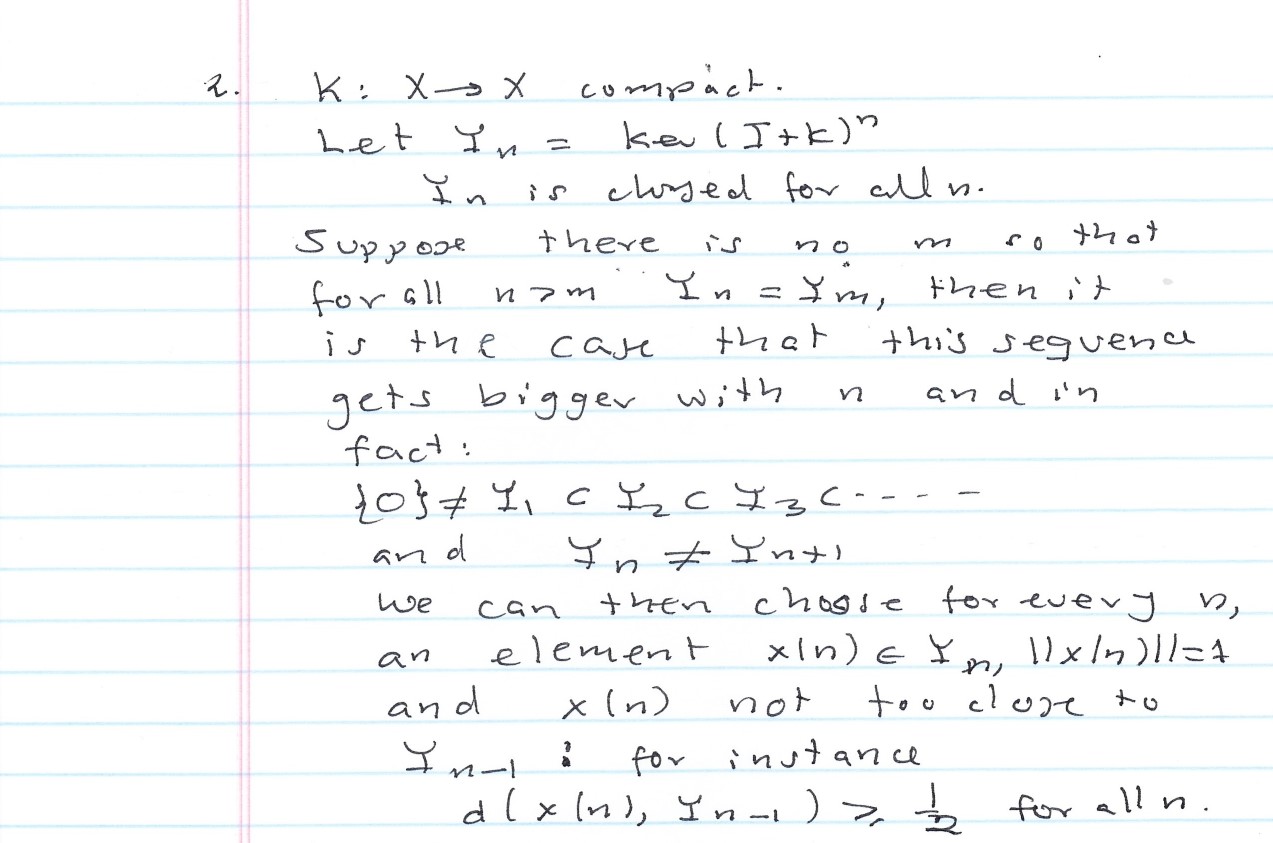 2. K: X → X compact.
Let Yn = ker (I+K)ⁿ
Yn is closed for all n.
Suppose there is no m so that
for all n>m Yn = Ym, then it
is the case that this sequence
gets bigger with n and in
fact:
{0} ≠ Y₁ ⊂ Y₂ ⊂ Y₃ ⊂ ----
and Yn ≠ Yn+1
We can then choose for every n,
an element x(n) ∈ Yn, ||x(n)||=1
and x(n) not too close to
Yn-1 : for instance
d(x(n), Yn-1) ≥ 1/2 for all n.